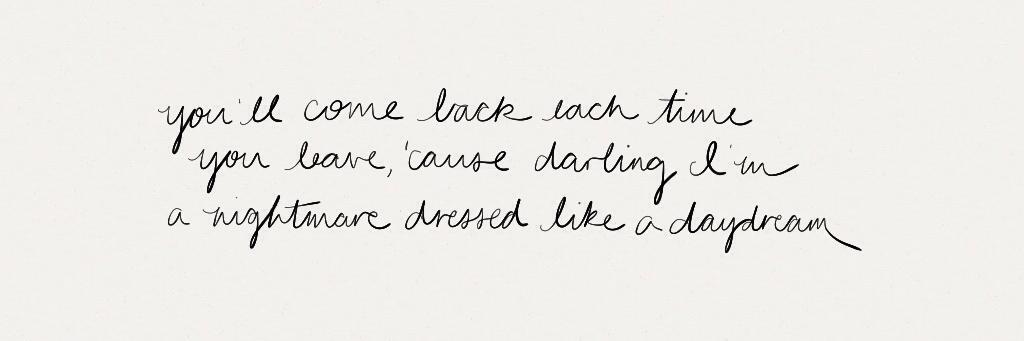 you'll come back each time
you leave, 'cause darling I'm
a nightmare dressed like a daydream